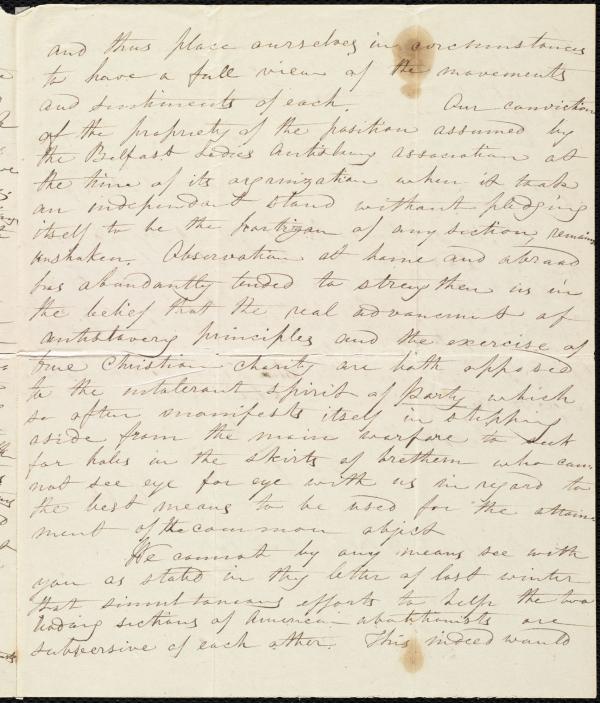 and thus place ourselves in circumstances
to have a full view of the movements
and sentiments of each. Our conviction
of the propriety of the position assumed by
the Belfast Ladies Antislavy association at
the time of its organization when it took
an independant stand without pledging
itself to be the partizan of any section, remains
unshaken. Observation at home and abroad
has abundantly tended to strengthen us in
the belief that the real advancement of
antislavery principles and the exercise of
true Christian charity are both opposed
to the intolerant spirit of party which
so often manifests itself in stepping
aside from the main warfare to seek
for holes in the skirts of brethern who can
not see eye for eye with us in regard to
the best means to be used for the attain
ment of the common object
We cannot by any means see with
you as stated in thy letter of last winter
that simultaneous efforts to help the two
leading sections of American abolitionists are
subversive of each other. This indeed would